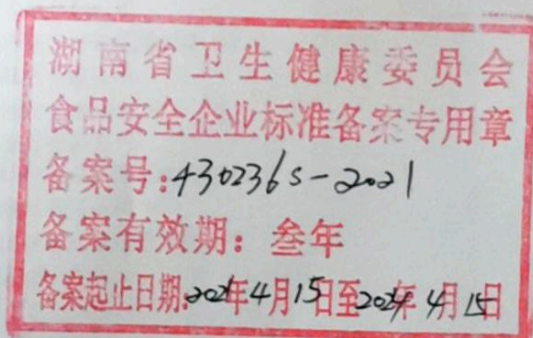 湖南省卫生健康委员会
食品安全企业标准备案专用章
备案号:430236S-2021
备案有效期：叁年
备案起止日期:2021年4月15日至2024年4月15日